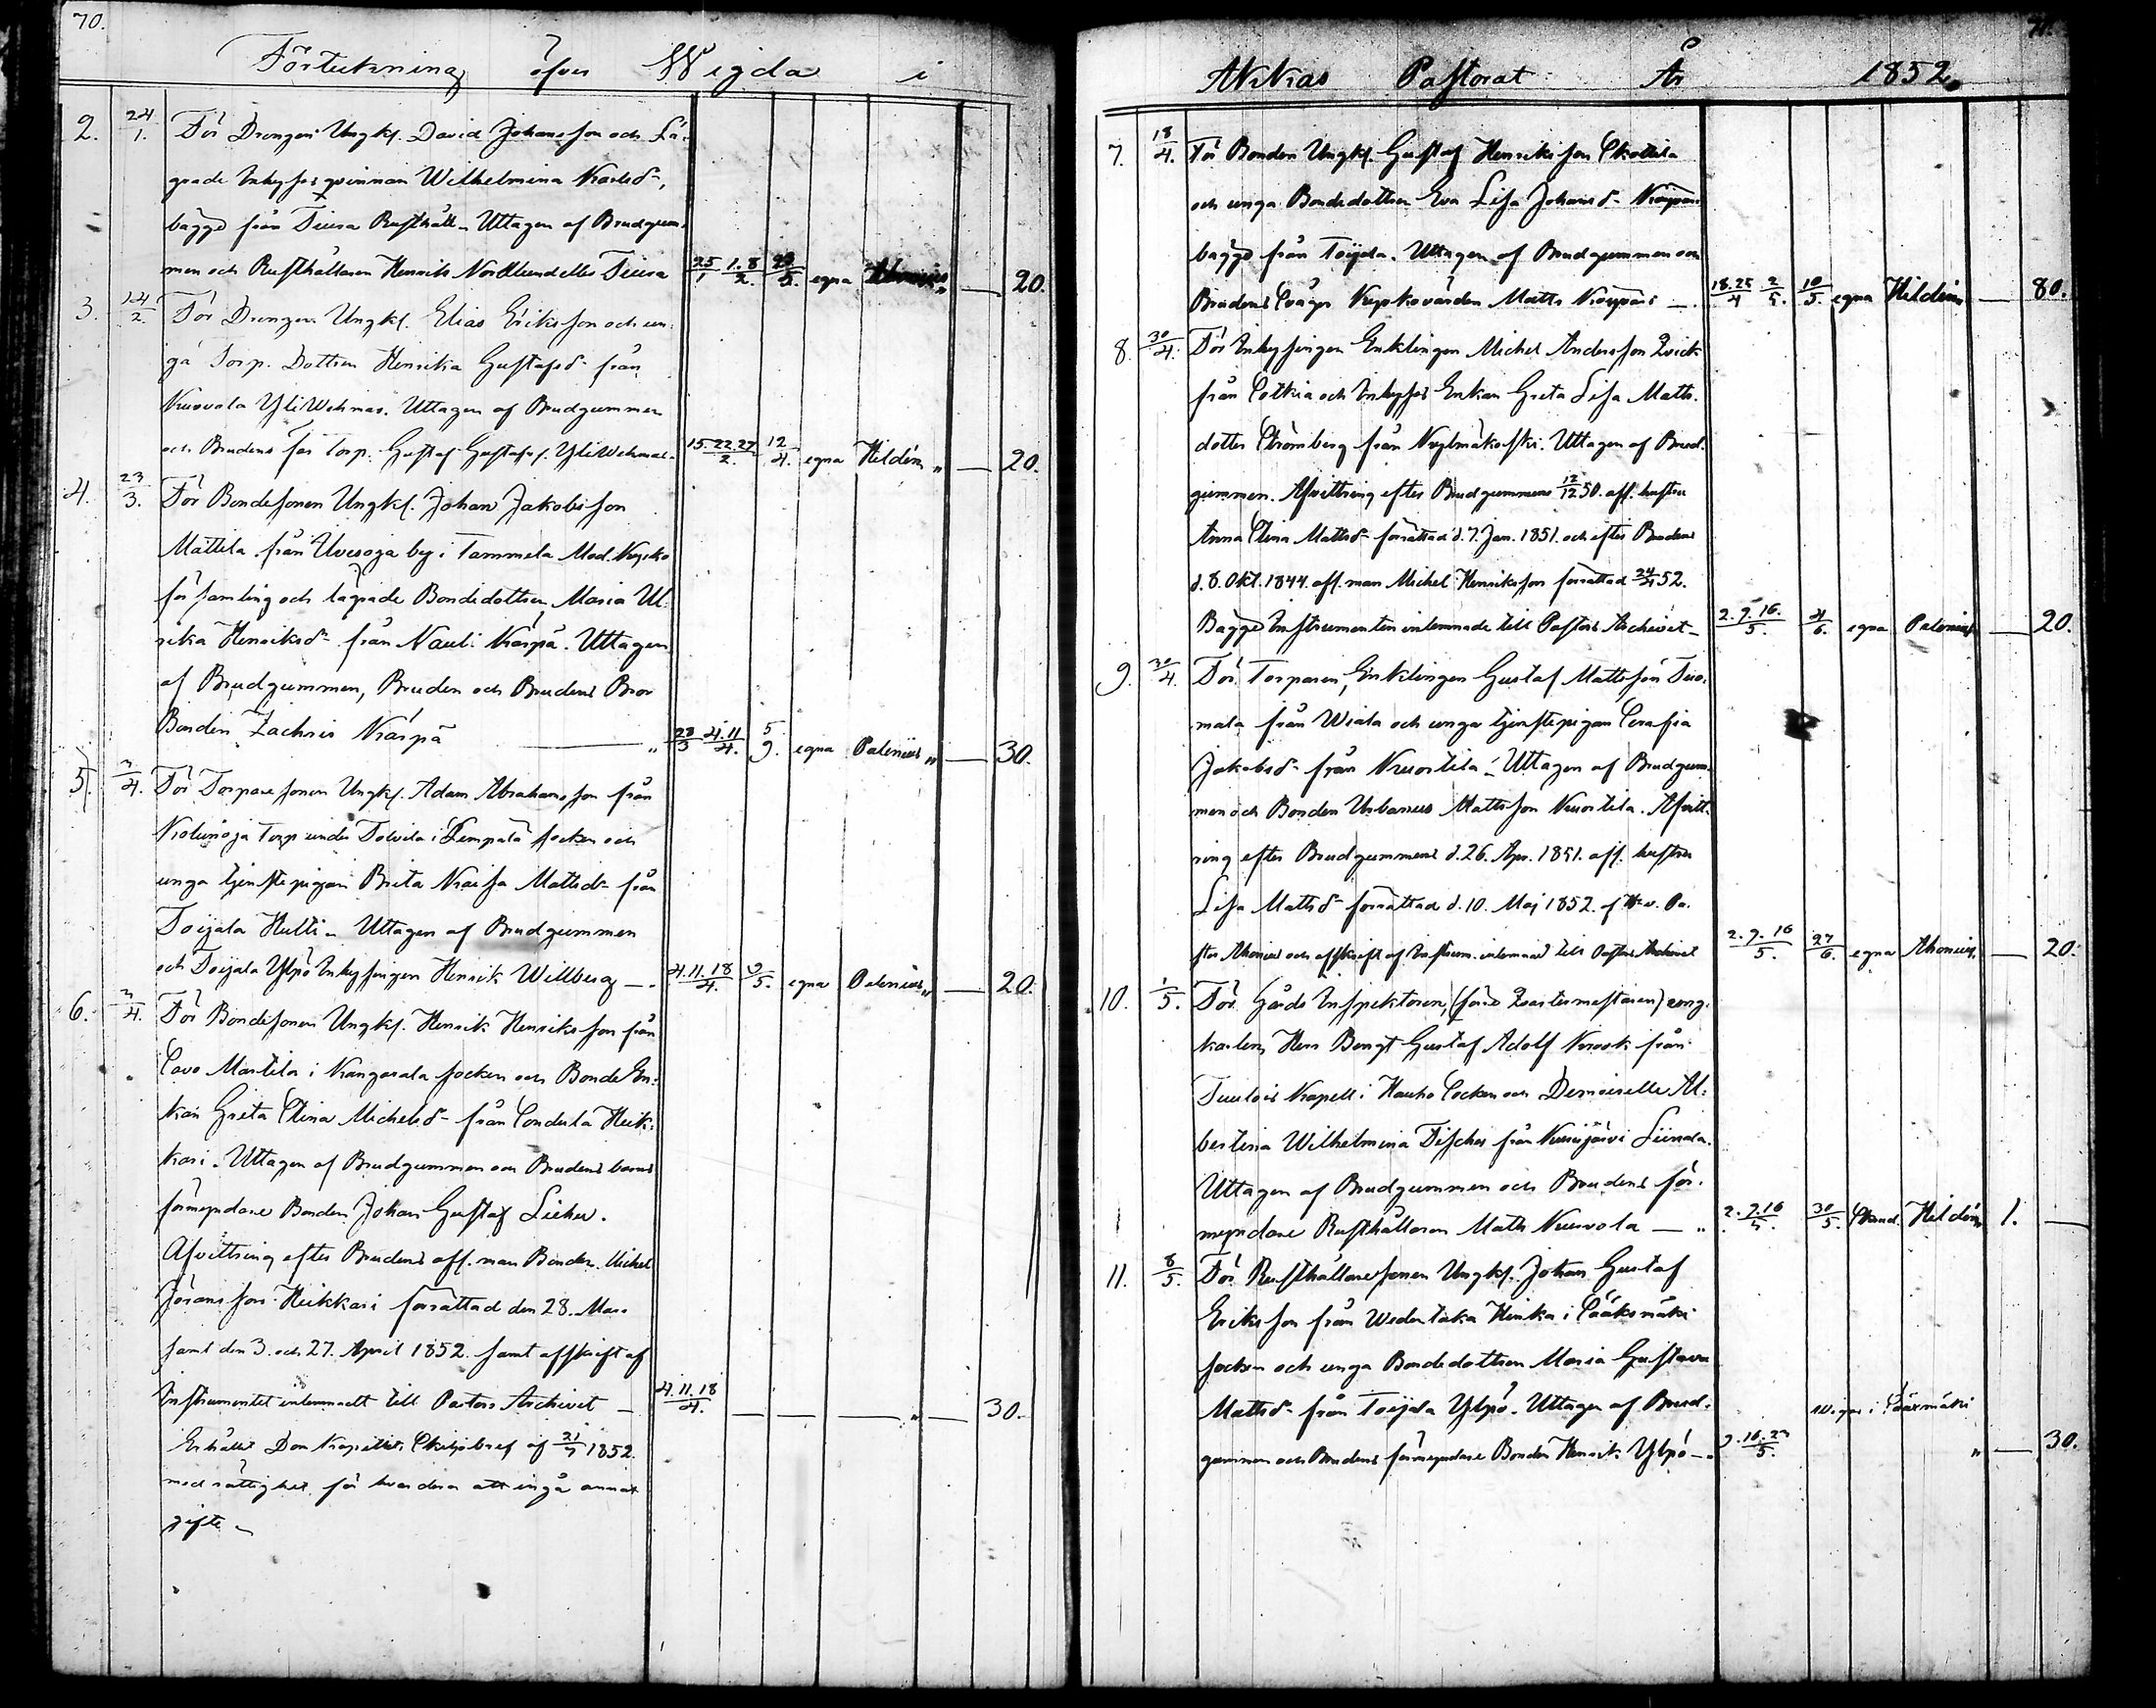 70.
Förteckning öfver Wigda i
2. 24/1. För Drengen Ungk. David Johansson och Lä-
grade Inhyses qvinnan Wilhelmina Karlsd:r,
bägge från Tiura Rusthåll. Uttagen af Brudgum-
men och Rusthållaren Henrik Tiura 25/1 1.8/2. 23/5. egna — 20.
3. 14/2. För Drengen Ungk. Elias Eriksson och un-
ga Torp. Dottren Henrika Gustafsd:r från
Kurvola YliWehmas. Uttagen af Brudgummen
och Brudens far Torp. Gustaf Gustafss. YliWehmas. 15.22.29/2. 12/4. egna Hildén " — 20.
4. 23/3. För Bondesonen Ungk. Johan Jakobsson
Mattila från by i Tammela Mod. Kyrko
församling och lägrade Bondedottren Maria Ul-
rika Henriksd:r från Nauli Kärpä. Uttagen
af Brudgummen, Bruden och Brudens Bror
Bonden Zachris Kärpä — " 28/3 4.11/4. 5/9. egna Palenius " — 30.
5. 3/4. För Torparesonen Ungk. Adam Abrahamsson från
Kolunoja Torp under Tolvila i Lempälä socken och
unga tjenstepigan Brita Kaisa Mattsd:r från
Toijala Hulti. Uttagen af Brudgummen
och Toijala Ylpö Inhysingen Henrik Willberg — 4.11.18/4. 9/5. egna Palenius " — 20.
6. 3/4. För Bondesonen Ungk. Henrik Henriksson från
Savo Marttila i Kangasala socken och Bonde En-
kan Greta Stina Michelsd:r från Sondula Heik-
kari. Uttagen af Brudgummen och Brudens barns
förmyndare Bonden Johan Gustaf
Afvittring efter Brudens afl. man Bonden Michel
Göransson Heikkari förrättad den 28. Mars
samt den 3. och 27. April 1852. samt afskrift af
Instrumentet inlemnadt till Pastors Archivet — 4.11.18/4. — — — " — 30.
Erhållit Dom Kapitlets Skiljobref af 21/7 1852.
med rättighet för hvardera att ingå annat
gifte.
71.
Akkas Pastorat År 1852.
7. 18/4. För Bonden Ungk. Gustaf Henriksson Skottila
och unga Bondedottren Eva Lisa Johansd:r Kärpäri
bägge från Toijala. Uttagen af Brudgummen och
Brudens Svåger Kyrkovärden Matts Kärpäri — 18.25/4 2/5. 10/5. egna Hildén — 80.
8. 30/4. För Inhysingen Enklingen Michel Andersson Qvick
från Sotkia och Inhyses Enkan Greta Lisa Matts-
dotter Strömberg från Kylmäkoski. Uttagen af Brud-
gummen. Afvittring efter Brudgummens 12/12 50. afl. hustru
Anna Stina Mattsd:r förrättad d. 7. Jan. 1851. och efter Brudens
d. 8. Okt. 1844. afl. man Michel Henriksson förrättad 24/4 52.
Bägge Instrumenten inlemnade till Pastors Archivet — 2.9.16./5. 4/6. egna Palenius — 20.
9. 30/4. För Torparen, Enklingen Gustaf Mattsson Tuo-
mala från Wiala och unga tjenstepigan Serafia
Jakobsd:r från Kurvtila. Uttagen af Brudgum-
men och Bonden Urbanus Mattsson Kurvtila. Afvitt-
ring efter Brudgummens d. 26. Apr. 1851. afl. hustru
Lisa Mattsd:r förrättad d. 10. Maj 1852. af Hr v. Pa-
stor Ahonius och afskrift af Instrum. inlemnad till Pastors Archivet 2.9.16/5. 27/6. egna Ahonius — 20.
10. 1/5. För Gårds Inspektoren, (förre Qvartermästaren) ung-
karlen Herr Bengt Gustaf Adolf Krook från
Tuulois Kapell i Hauho Socken och Demoiselle Al-
bertina Wilhelmina Fischer från Kurisjärvi
Uttagen af Brudgummen och Brudens för-
myndare Rusthållaren Matts Kurvola — " 2.9.16/5. 30/5. Hildén 1. —
11. 8/5. För Rusthållaresonen Ungk. Johan Gustaf
Eriksson från Wedentaka Hinka i Sääksmäki
socken och unga Bondedottren Maria Gustava
Mattsd:r från Toijala Ylpö. Uttagen af Brud-
gummen och Brudens förmyndare Bonden Henrik Ylpö — 9.16.23/5. Wigas i Sääxmäki " — 30.